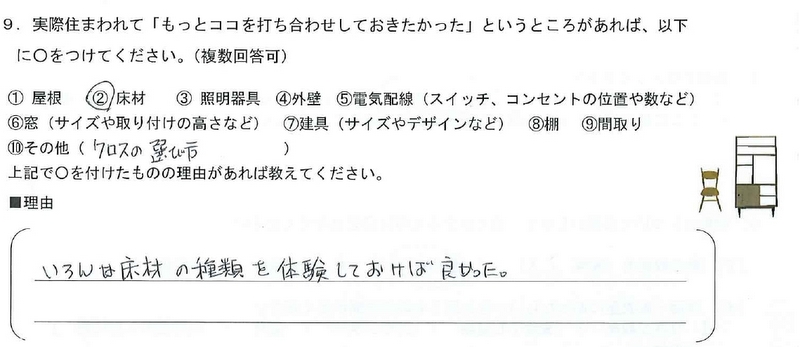 ９．実際住まわれて「もっとココを打ち合わせしておきたかった」というところがあれば、以下
に〇をつけてください。（複数回答可）
① 屋根 ②床材 ③ 照明器具 ④外壁 ⑤電気配線（スイッチ、コンセントの位置や数など）
⑥窓（サイズや取り付けの高さなど） ⑦建具（サイズやデザインなど） ⑧棚 ⑨間取り
⑩その他（ クロスの選び方 ）
上記で〇を付けたものの理由があれば教えてください。
■理由
いろんな床材の種類を体験しておけば良かった。